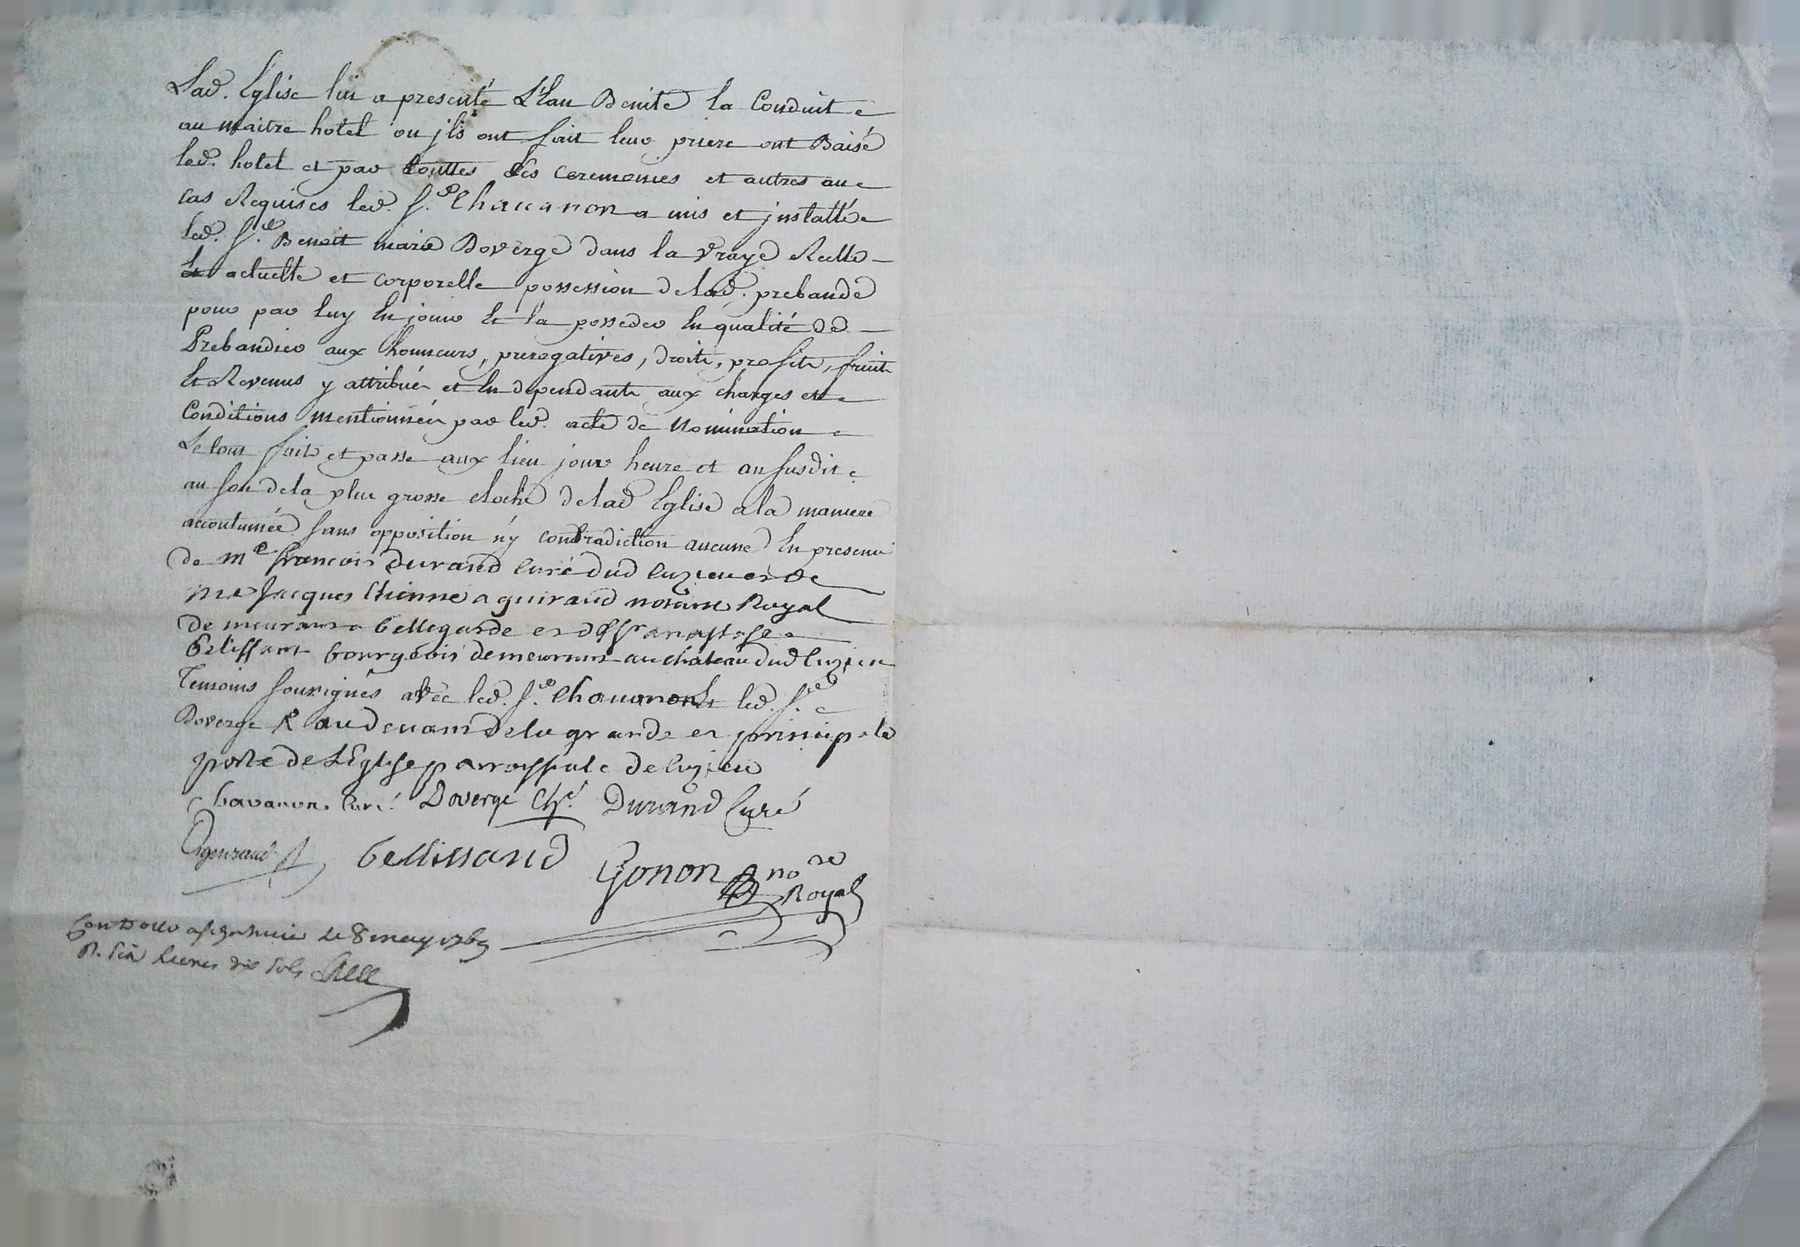 Lad. Eglise lui a presenté L'Eau Benite la Conduit
au maitre hotel ou jls ont fait leur priere ont Baisé
led. hotel et par touttes les ceremonies et autres au
cas Requises led. Sr. Chavanon a mis et jnstallé
led. Sr. Benoit marie Doverge dans la vraye Reelle
actuelle et corporelle possession de lad. prebande
pour par luy En jouir Et la posseder En qualité de
Prebandier aux honneurs, prerogatives, droits, profits, fruits
Et Revenus y attribués et En dependants aux charges et
Conditions mentionnées par led. acte de Nomination
Le tout fait et passé aux lieu jour heure et an susdit
au son de la plus grosse cloche de lad Eglise a la maniere
accoutumée sans opposition n'y contradiction aucune En presence
de me. francois Durand Curé dud Cuzieu et de
me Jacques Etienne aguiraud notaire Royal
demeurant a bellegarde et de Sr anastase
bellissant bourgeois demeurant au chateau dud Cuzieu
Temoins soussignés avec led. Sr. Chavanon Et led. Sr.
Doverge & au devant de la grande et principale
porte de L'Eglise parroissiale de Cuzieu
Chavanon Curé. Doverge Cle. Durand Curé
aguiraud bellissand Gonon nore
Royal
Controllé a le 8 may 1769
R. six livres dix sols